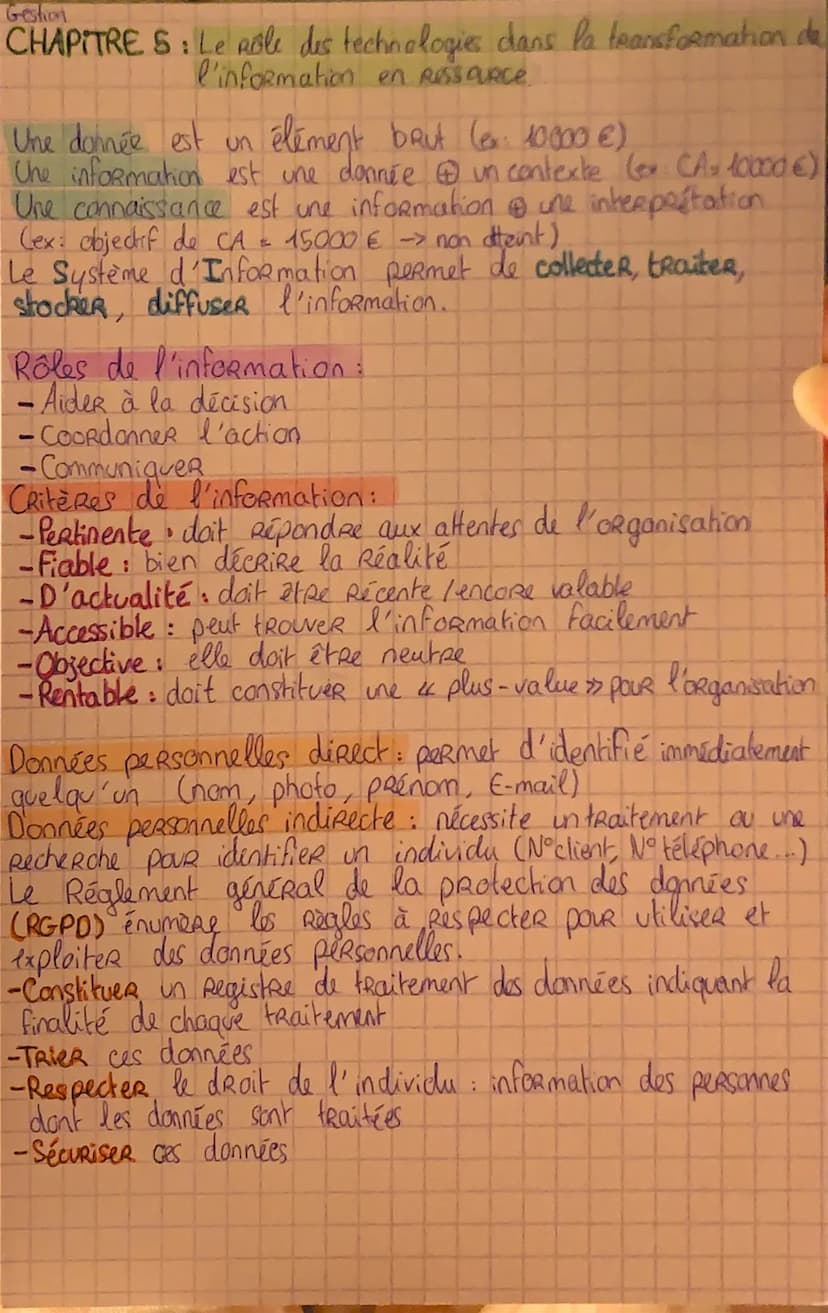 Gestion
CHAPITRE 5 : Le Rôle des technologies dans la transformation de
l'information en RessouRce
Une donnée est un élément brut (ex: 10000 €)
Une information est une donnée ⊕ un contexte (ex: CA = 10000 €)
Une connaissance est une information ⊕ une interprétation
(ex: objectif de CA = 15000 € -> non atteint)
Le Système d'Information permet de collecter, traiter,
stocker, diffuser l'information.
Rôles de l'information :
- Aider à la décision
- Coordonner l'action
- Communiquer
Critères de l'information :
- Pertinente : doit répondre aux attentes de l'organisation
- Fiable : bien décrire la réalité
- D'actualité : doit être récente / encore valable
- Accessible : peut trouver l'information facilement
- Objective : elle doit être neutre
- Rentable : doit constituer une « plus-value » pour l'organisation
Données personnelles direct : permet d'identifié immédiatement
quelqu'un (nom, photo, prénom, E-mail)
Données personnelles indirecte : nécessite un traitement ou une
recherche pour identifier un individu (N°client, N° téléphone...)
Le Réglement général de la protection des données
(RGPD) énumère les règles à respecter pour utiliser et
exploiter des données personnelles.
- Constituer un registre de traitement des données indiquant la
finalité de chaque traitement
- Trier ces données
- Respecter le droit de l'individu : information des personnes
dont les données sont traitées
- Sécuriser ces données